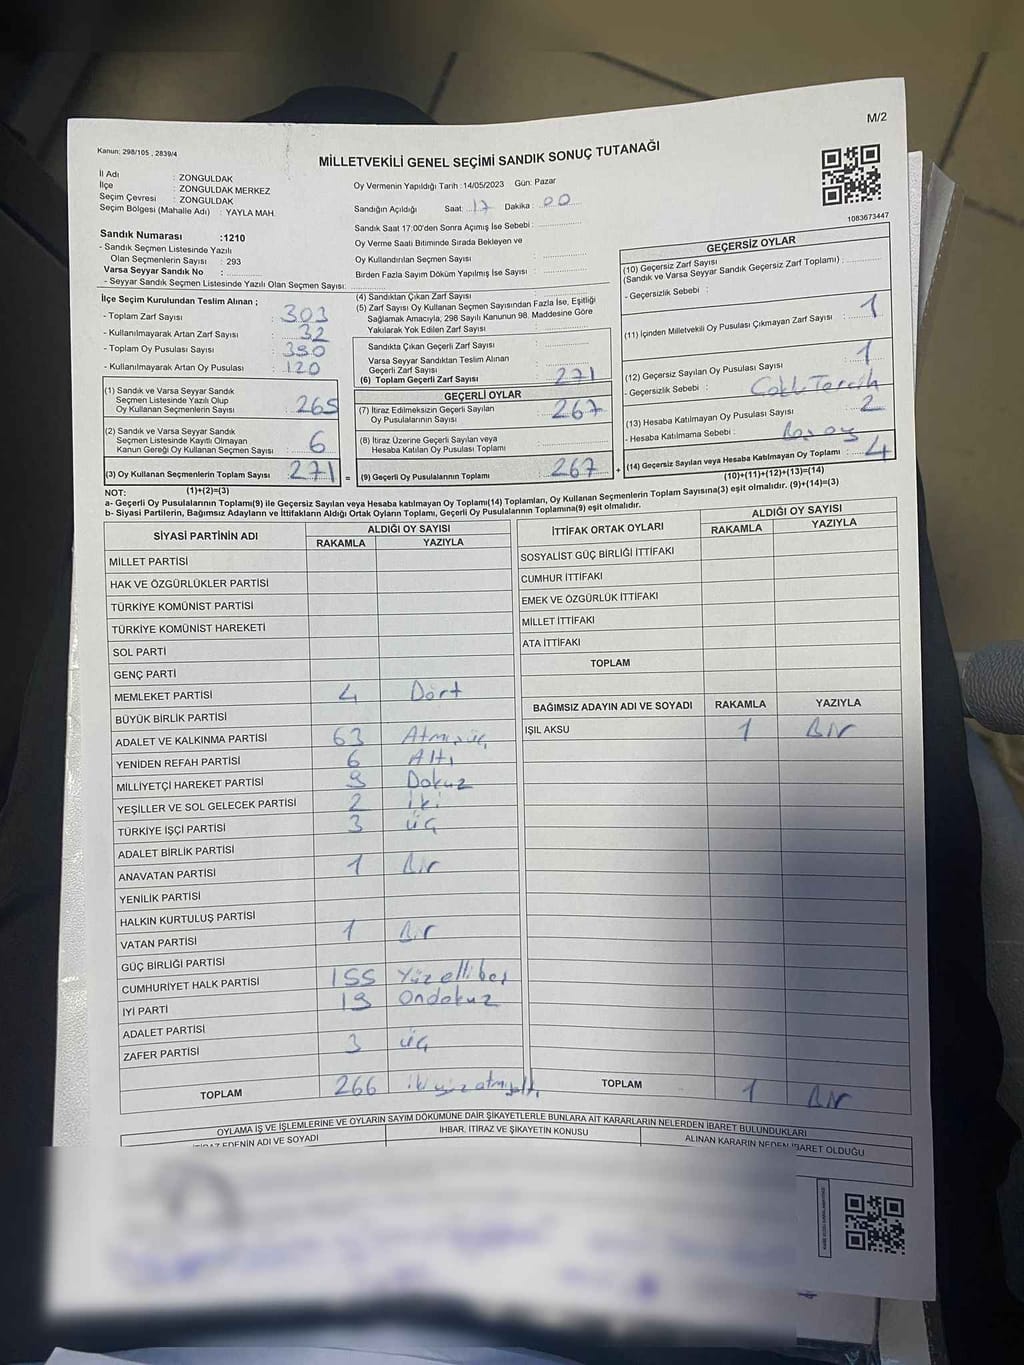 M/2
Kanun: 298/105 , 2839/4
MİLLETVEKİLİ GENEL SEÇİMİ SANDIK SONUÇ TUTANAĞI
1083673447
İl Adı : ZONGULDAK
İlçe : ZONGULDAK MERKEZ
Seçim Çevresi : ZONGULDAK
Seçim Bölgesi (Mahalle Adı) : YAYLA MAH.
Sandık Numarası :1210
- Sandık Seçmen Listesinde Yazılı
Olan Seçmenlerin Sayısı : 293
Varsa Seyyar Sandık No :
- Seyyar Sandık Seçmen Listesinde Yazılı Olan Seçmen Sayısı:
Oy Vermenin Yapıldığı Tarih :14/05/2023 Gün: Pazar
Sandığın Açıldığı Saat: 17 Dakika: 00
Sandık Saat 17:00'den Sonra Açımış İse Sebebi :
Oy Verme Saati Bitiminde Sırada Bekleyen ve
Oy Kullandırılan Seçmen Sayısı :
Birden Fazla Sayım Döküm Yapılmış İse Sayısı :
İlçe Seçim Kurulundan Teslim Alınan ;
- Toplam Zarf Sayısı : 303
- Kullanılmayarak Artan Zarf Sayısı : 32
- Toplam Oy Pusulası Sayısı : 390
- Kullanılmayarak Artan Oy Pusulası : 120
(1) Sandık ve Varsa Seyyar Sandık
Seçmen Listesinde Yazılı Olup
Oy Kullanan Seçmenlerin Sayısı : 265
(2) Sandık ve Varsa Seyyar Sandık
Seçmen Listesinde Kayıtlı Olmayan
Kanun Gereği Oy Kullanan Seçmen Sayısı : 6
(3) Oy Kullanan Seçmenlerin Toplam Sayısı : 271
(4) Sandıktan Çıkan Zarf Sayısı :
(5) Zarf Sayısı Oy Kullanan Seçmen Sayısından Fazla İse, Eşitliği
Sağlamak Amacıyla, 298 Sayılı Kanunun 98. Maddesine Göre
Yakılarak Yok Edilen Zarf Sayısı :
Sandıkta Çıkan Geçerli Zarf Sayısı :
Varsa Seyyar Sandıktan Teslim Alınan
Geçerli Zarf Sayısı :
(6) Toplam Geçerli Zarf Sayısı : 271
GEÇERLİ OYLAR
(7) İtiraz Edilmeksizin Geçerli Sayılan
Oy Pusulalarının Sayısı : 267
(8) İtiraz Üzerine Geçerli Sayılan veya
Hesaba Katılan Oy Pusulası Toplamı :
= (9) Geçerli Oy Pusulalarının Toplamı : 267 +
GEÇERSİZ OYLAR
(10) Geçersiz Zarf Sayısı
(Sandık ve Varsa Seyyar Sandık Geçersiz Zarf Toplamı) :
- Geçersizlik Sebebi :
(11) İçinden Milletvekili Oy Pusulası Çıkmayan Zarf Sayısı : 1
(12) Geçersiz Sayılan Oy Pusulası Sayısı : 1
- Geçersizlik Sebebi : Çoklu Tercih
(13) Hesaba Katılmayan Oy Pusulası Sayısı : 2
- Hesaba Katılmama Sebebi : Boş oy
(14) Geçersiz Sayılan veya Hesaba Katılmayan Oy Toplamı : 4
NOT: (1)+(2)=(3)
(10)+(11)+(12)+(13)=(14)
a- Geçerli Oy Pusulalarının Toplamı(9) ile Geçersiz Sayılan veya Hesaba katılmayan Oy Toplamı(14) Toplamları, Oy Kullanan Seçmenlerin Toplam Sayısına(3) eşit olmalıdır. (9)+(14)=(3)
b- Siyasi Partilerin, Bağımsız Adayların ve İttifakların Aldığı Ortak Oyların Toplamı, Geçerli Oy Pusulalarının Toplamına(9) eşit olmalıdır.
SİYASİ PARTİNİN ADI
ALDIĞI OY SAYISI
RAKAMLA YAZIYLA
MİLLET PARTİSİ
HAK VE ÖZGÜRLÜKLER PARTİSİ
TÜRKİYE KOMÜNİST PARTİSİ
TÜRKİYE KOMÜNİST HAREKETİ
SOL PARTİ
GENÇ PARTİ
MEMLEKET PARTİSİ 4 Dört
BÜYÜK BİRLİK PARTİSİ
ADALET VE KALKINMA PARTİSİ 63 Atmışüç
YENİDEN REFAH PARTİSİ 6 Altı
MİLLİYETÇİ HAREKET PARTİSİ 9 Dokuz
YEŞİLLER VE SOL GELECEK PARTİSİ 2 İki
TÜRKİYE İŞÇİ PARTİSİ 3 üç
ADALET BİRLİK PARTİSİ
ANAVATAN PARTİSİ 1 Bir
YENİLİK PARTİSİ
HALKIN KURTULUŞ PARTİSİ
VATAN PARTİSİ 1 Bir
GÜÇ BİRLİĞİ PARTİSİ
CUMHURİYET HALK PARTİSİ 155 Yüzellibeş
İYİ PARTİ 19 Ondokuz
ADALET PARTİSİ
ZAFER PARTİSİ 3 üç
TOPLAM 266 ikiyüzatmışaltı
İTTİFAK ORTAK OYLARI
ALDIĞI OY SAYISI
RAKAMLA YAZIYLA
SOSYALİST GÜÇ BİRLİĞİ İTTİFAKI
CUMHUR İTTİFAKI
EMEK VE ÖZGÜRLÜK İTTİFAKI
MİLLET İTTİFAKI
ATA İTTİFAKI
TOPLAM
BAĞIMSIZ ADAYIN ADI VE SOYADI RAKAMLA YAZIYLA
IŞIL AKSU 1 Bir
TOPLAM 1 Bir
OYLAMA İŞ VE İŞLEMLERİNE VE OYLARIN SAYIM DÖKÜMÜNE DAİR ŞİKAYETLERLE BUNLARA AİT KARARLARIN NELERDEN İBARET BULUNDUKLARI
İTİRAZ EDENİN ADI VE SOYADI
İHBAR, İTİRAZ VE ŞİKAYETİN KONUSU
ALINAN KARARIN NEDEN İBARET OLDUĞU